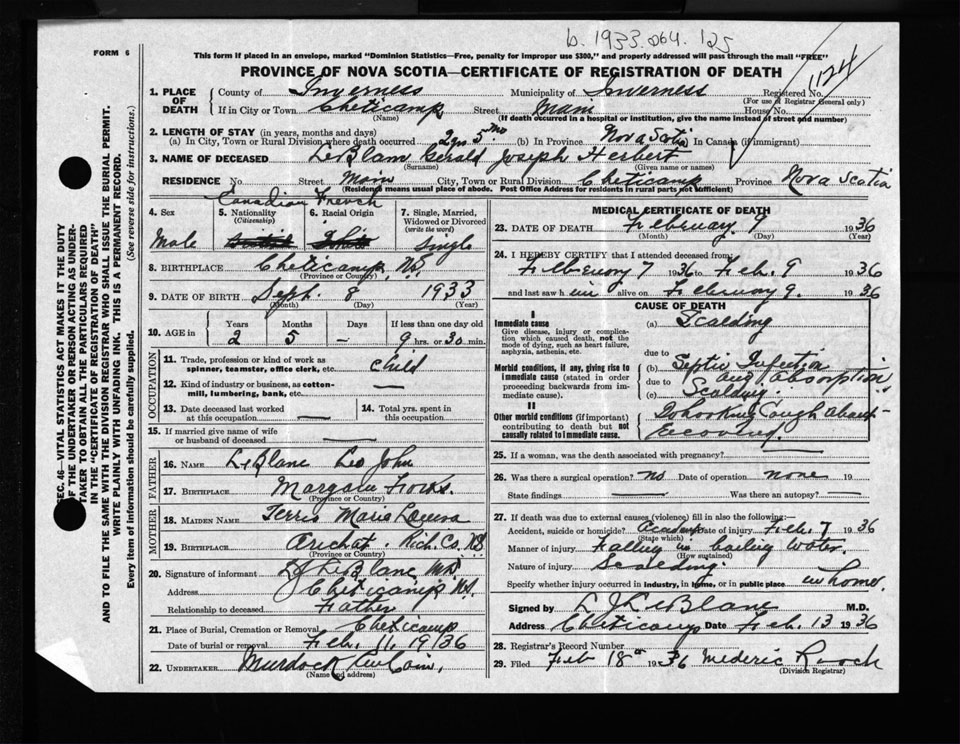 b. 1933.064.125
1124
FORM 6
This form if placed in an envelope, marked "Dominion Statistics—Free, penalty for improper use $300," and properly addressed will pass through the mail "FREE"
PROVINCE OF NOVA SCOTIA—CERTIFICATE OF REGISTRATION OF DEATH
SEC. 46—VITAL STATISTICS ACT MAKES IT THE DUTY
OF THE UNDERTAKER OR PERSON ACTING AS UNDER-
TAKER TO OBTAIN ALL THE PARTICULARS REQUIRED
IN THE "CERTIFICATE OF REGISTRATION OF DEATH"
AND TO FILE THE SAME WITH THE DIVISION REGISTRAR WHO SHALL ISSUE THE BURIAL PERMIT.
WRITE PLAINLY WITH UNFADING INK. THIS IS A PERMANENT RECORD.
Every item of information should be carefully supplied. (See reverse side for instructions.)
1. PLACE OF DEATH County of Inverness Municipality of Inverness Registered No.
(For use of Registrar General only)
If in City or Town Cheticamp Street Main House No.
(Name) (If death occurred in a hospital or institution, give the name instead of street and number)
2. LENGTH OF STAY (in years, months and days)
(a) In City, Town or Rural Division where death occurred 2 yrs 5 mo (b) In Province Nova Scotia In Canada (if immigrant)
3. NAME OF DECEASED LeBlanc Gerald Joseph Herbert
(Surname) (Given name or names)
RESIDENCE No. Street Main City, Town or Rural Division Cheticamp Province Nova Scotia
(Residence means usual place of abode. Post Office Address for residents in rural parts not sufficient)
Canadian French
4. Sex 5. Nationality (Citizenship) 6. Racial Origin 7. Single, Married, Widowed or Divorced (write the word)
Male British White Single
8. BIRTHPLACE Cheticamp, N.S.
(Province or Country)
9. DATE OF BIRTH Sept. 8 1933
(Month) (Day) (Year)
10. AGE in Years Months Days If less than one day old
2 5 - 9 hrs. or 30 min.
OCCUPATION
11. Trade, profession or kind of work as spinner, teamster, office clerk, etc. child
12. Kind of industry or business, as cotton-mill, lumbering, bank, etc. —
13. Date deceased last worked at this occupation — 14. Total yrs. spent in this occupation —
15. If married give name of wife or husband of deceased —
FATHER
16. NAME LeBlanc Leo John
17. BIRTHPLACE Margaree Forks.
(Province or Country)
MOTHER
18. MAIDEN NAME Terrio Marie
19. BIRTHPLACE Arichat, Rich. Co. N.S.
(Province or Country)
20. Signature of informant L J LeBlanc M.D.
Address Cheticamp N.S.
Relationship to deceased Father
21. Place of Burial, Cremation or Removal Cheticamp
Date of burial or removal Feb. 11, 1936
22. UNDERTAKER Murdock
(Name and address)
MEDICAL CERTIFICATE OF DEATH
23. DATE OF DEATH February 9 1936
(Month) (Day) (Year)
24. I HEREBY CERTIFY that I attended deceased from:
February 7 1936 to Feb. 9 1936
and last saw him alive on February 9. 1936
CAUSE OF DEATH
I
Immediate cause (a) Scalding
Give disease, injury or complication which caused death, not the mode of dying, such as heart failure, asphyxia, asthenia, etc.
due to
Morbid conditions, if any, giving rise to immediate cause (stated in order proceeding backwards from immediate cause). (b) Septic Infection
due to and absorption
(c) Scalding
II
Other morbid conditions (if important) contributing to death but not causally related to immediate cause. Whooking Cough
25. If a woman, was the death associated with pregnancy?
26. Was there a surgical operation? no Date of operation none 19
State findings — Was there an autopsy? —
27. If death was due to external causes (violence) fill in also the following:—
Accident, suicide or homicide? Accident Date of injury Feb. 7 1936
(State which)
Manner of injury Falling in boiling water.
(How sustained)
Nature of injury Scalding.
Specify whether injury occurred in industry, in home, or in public place in home.
Signed by L J LeBlanc M.D.
Address Cheticamp Date Feb. 13 1936
28. Registrar's Record Number
29. Filed Feb 18th 1936 Mederic Roach
(Division Registrar)